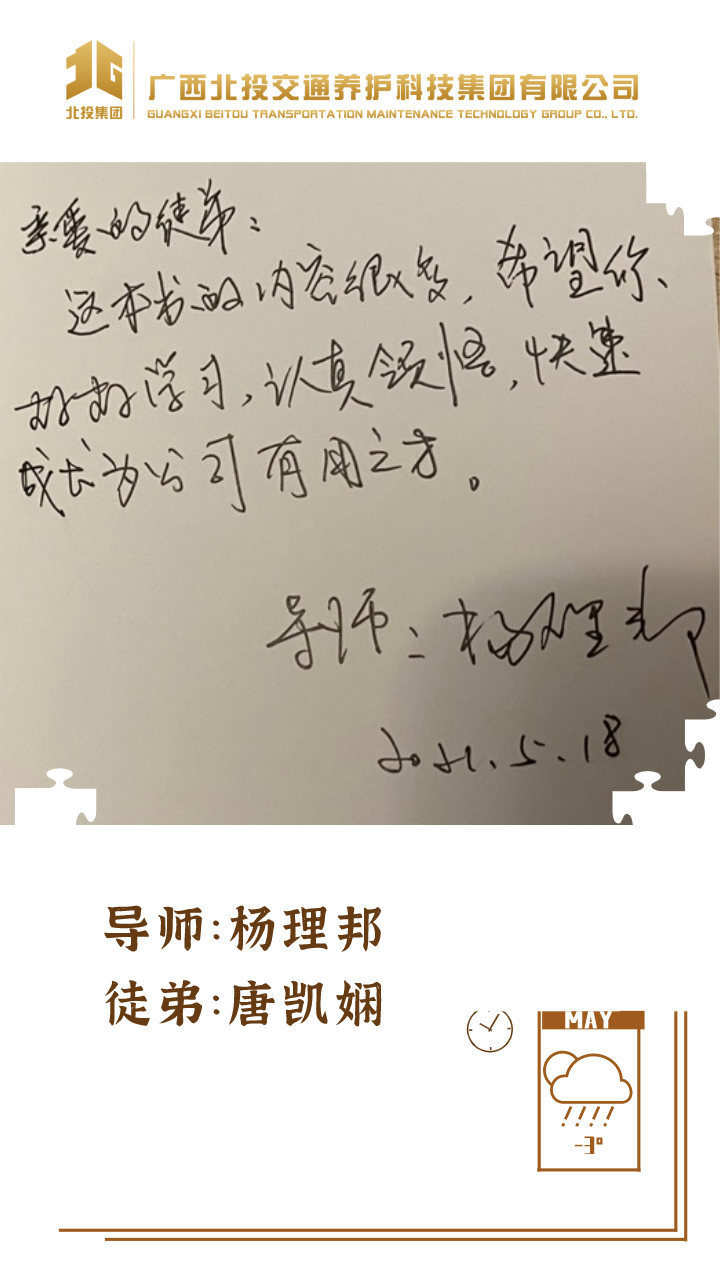 北投集团
广西北投交通养护科技集团有限公司
GUANGXI BEITOU TRANSPORTATION MAINTENANCE TECHNOLOGY GROUP CO., LTD.
亲爱的徒弟：
这本书的内容很多，希望你、
好好学习，认真领悟，快速
成长为公司有用之才。
导师：杨理邦
2021.5.18
导师:杨理邦
徒弟:唐凯娴
MAY
-3°